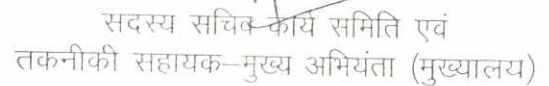 सदस्य सचिव कार्य समिति एवं
तकनीकी सहायक–मुख्य अभियंता (मुख्यालय)